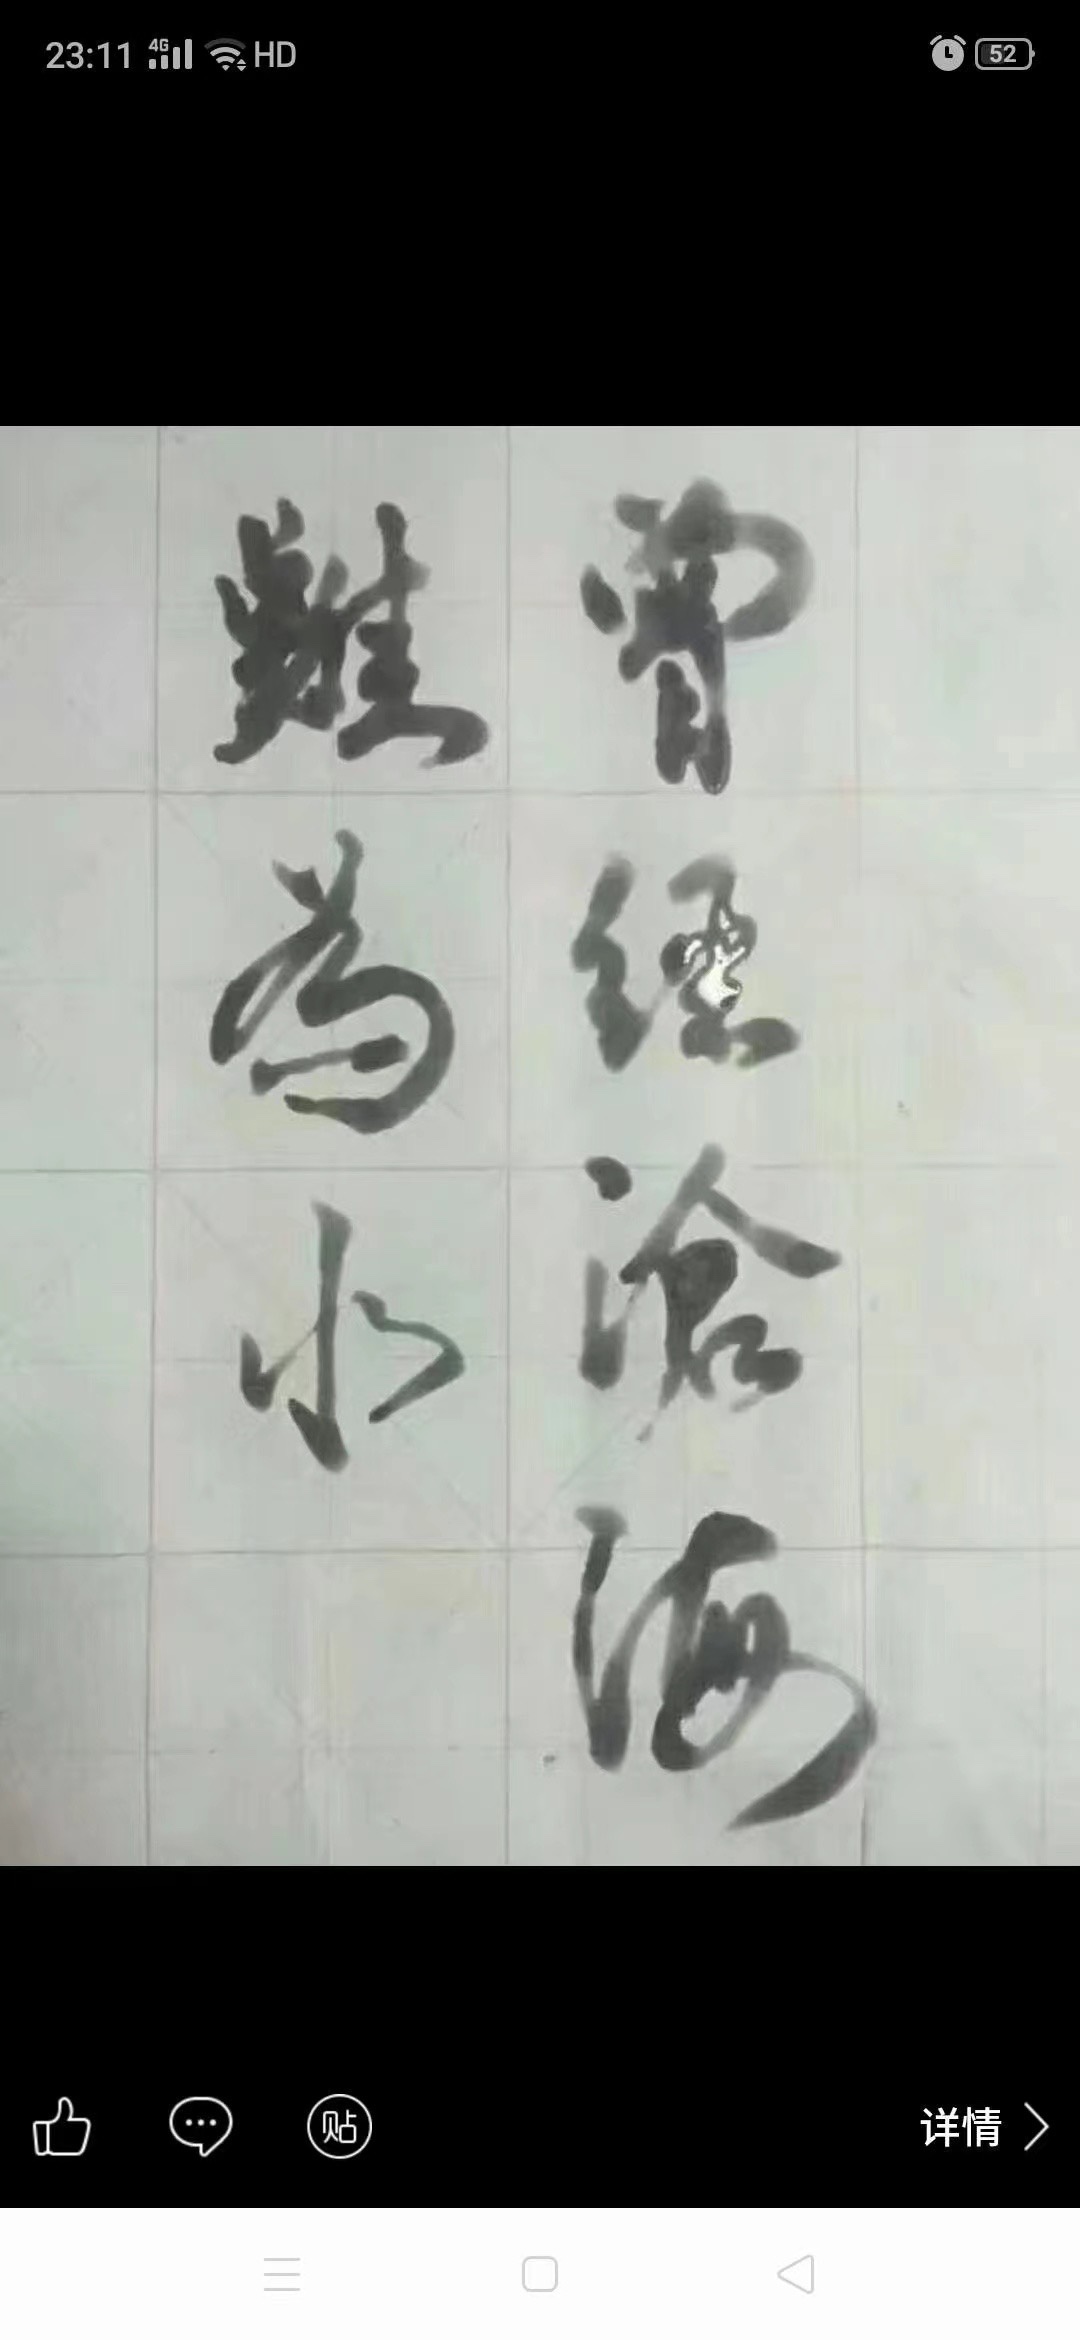 23:11 4G HD 52
曾經滄海
難為水
贴
详情